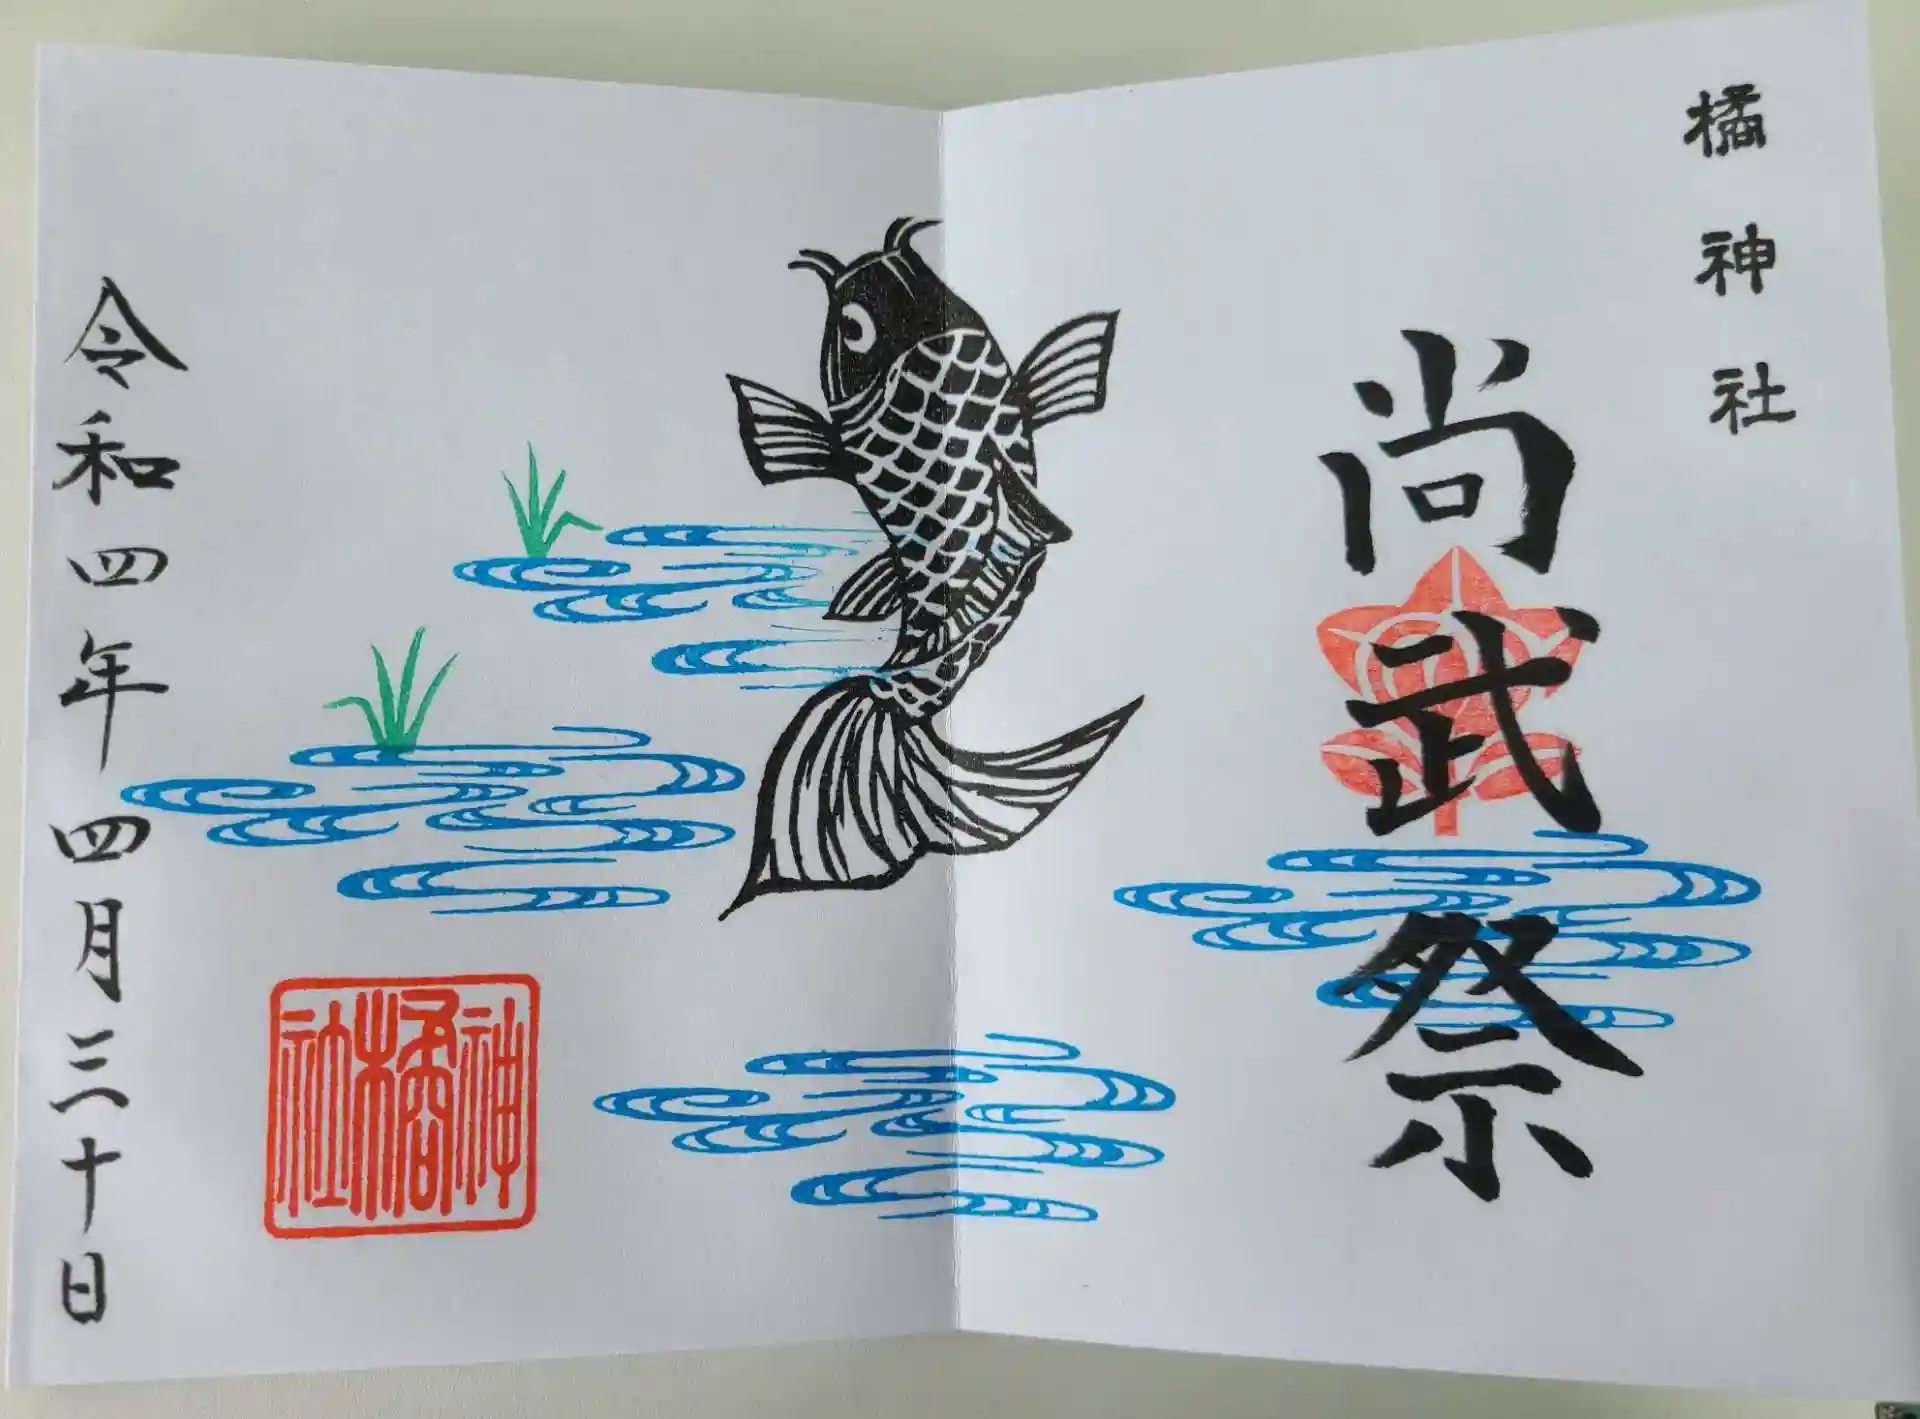 橘神社
尚武祭
令和四年四月三十日
神
橘
社